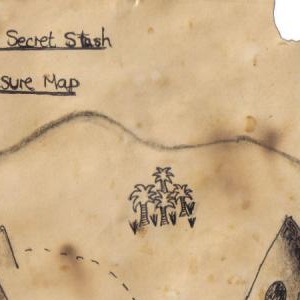 Secret Stash
sure Map